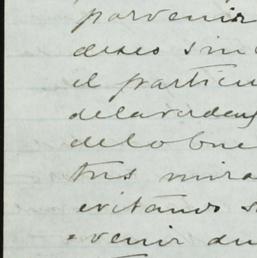 porvenir
deseo sin
el particu
delaverdad
delo bue
tus mira
evitando s
evenir du